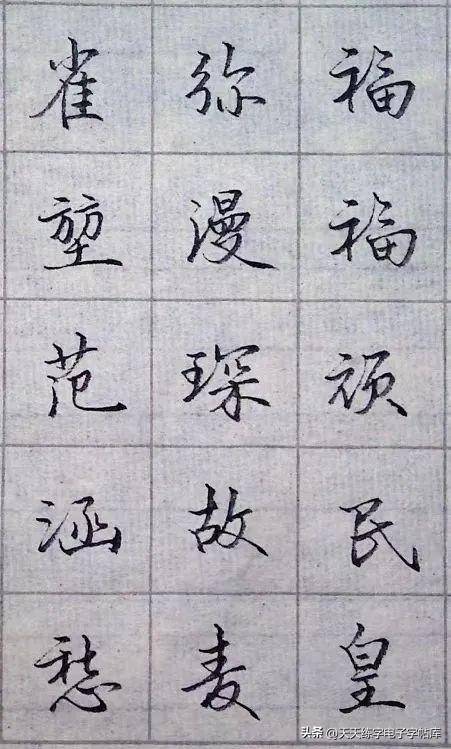 福福民皇
弥漫琛故麦
雀堃范涵愁
头条 @天天练字电子字帖库